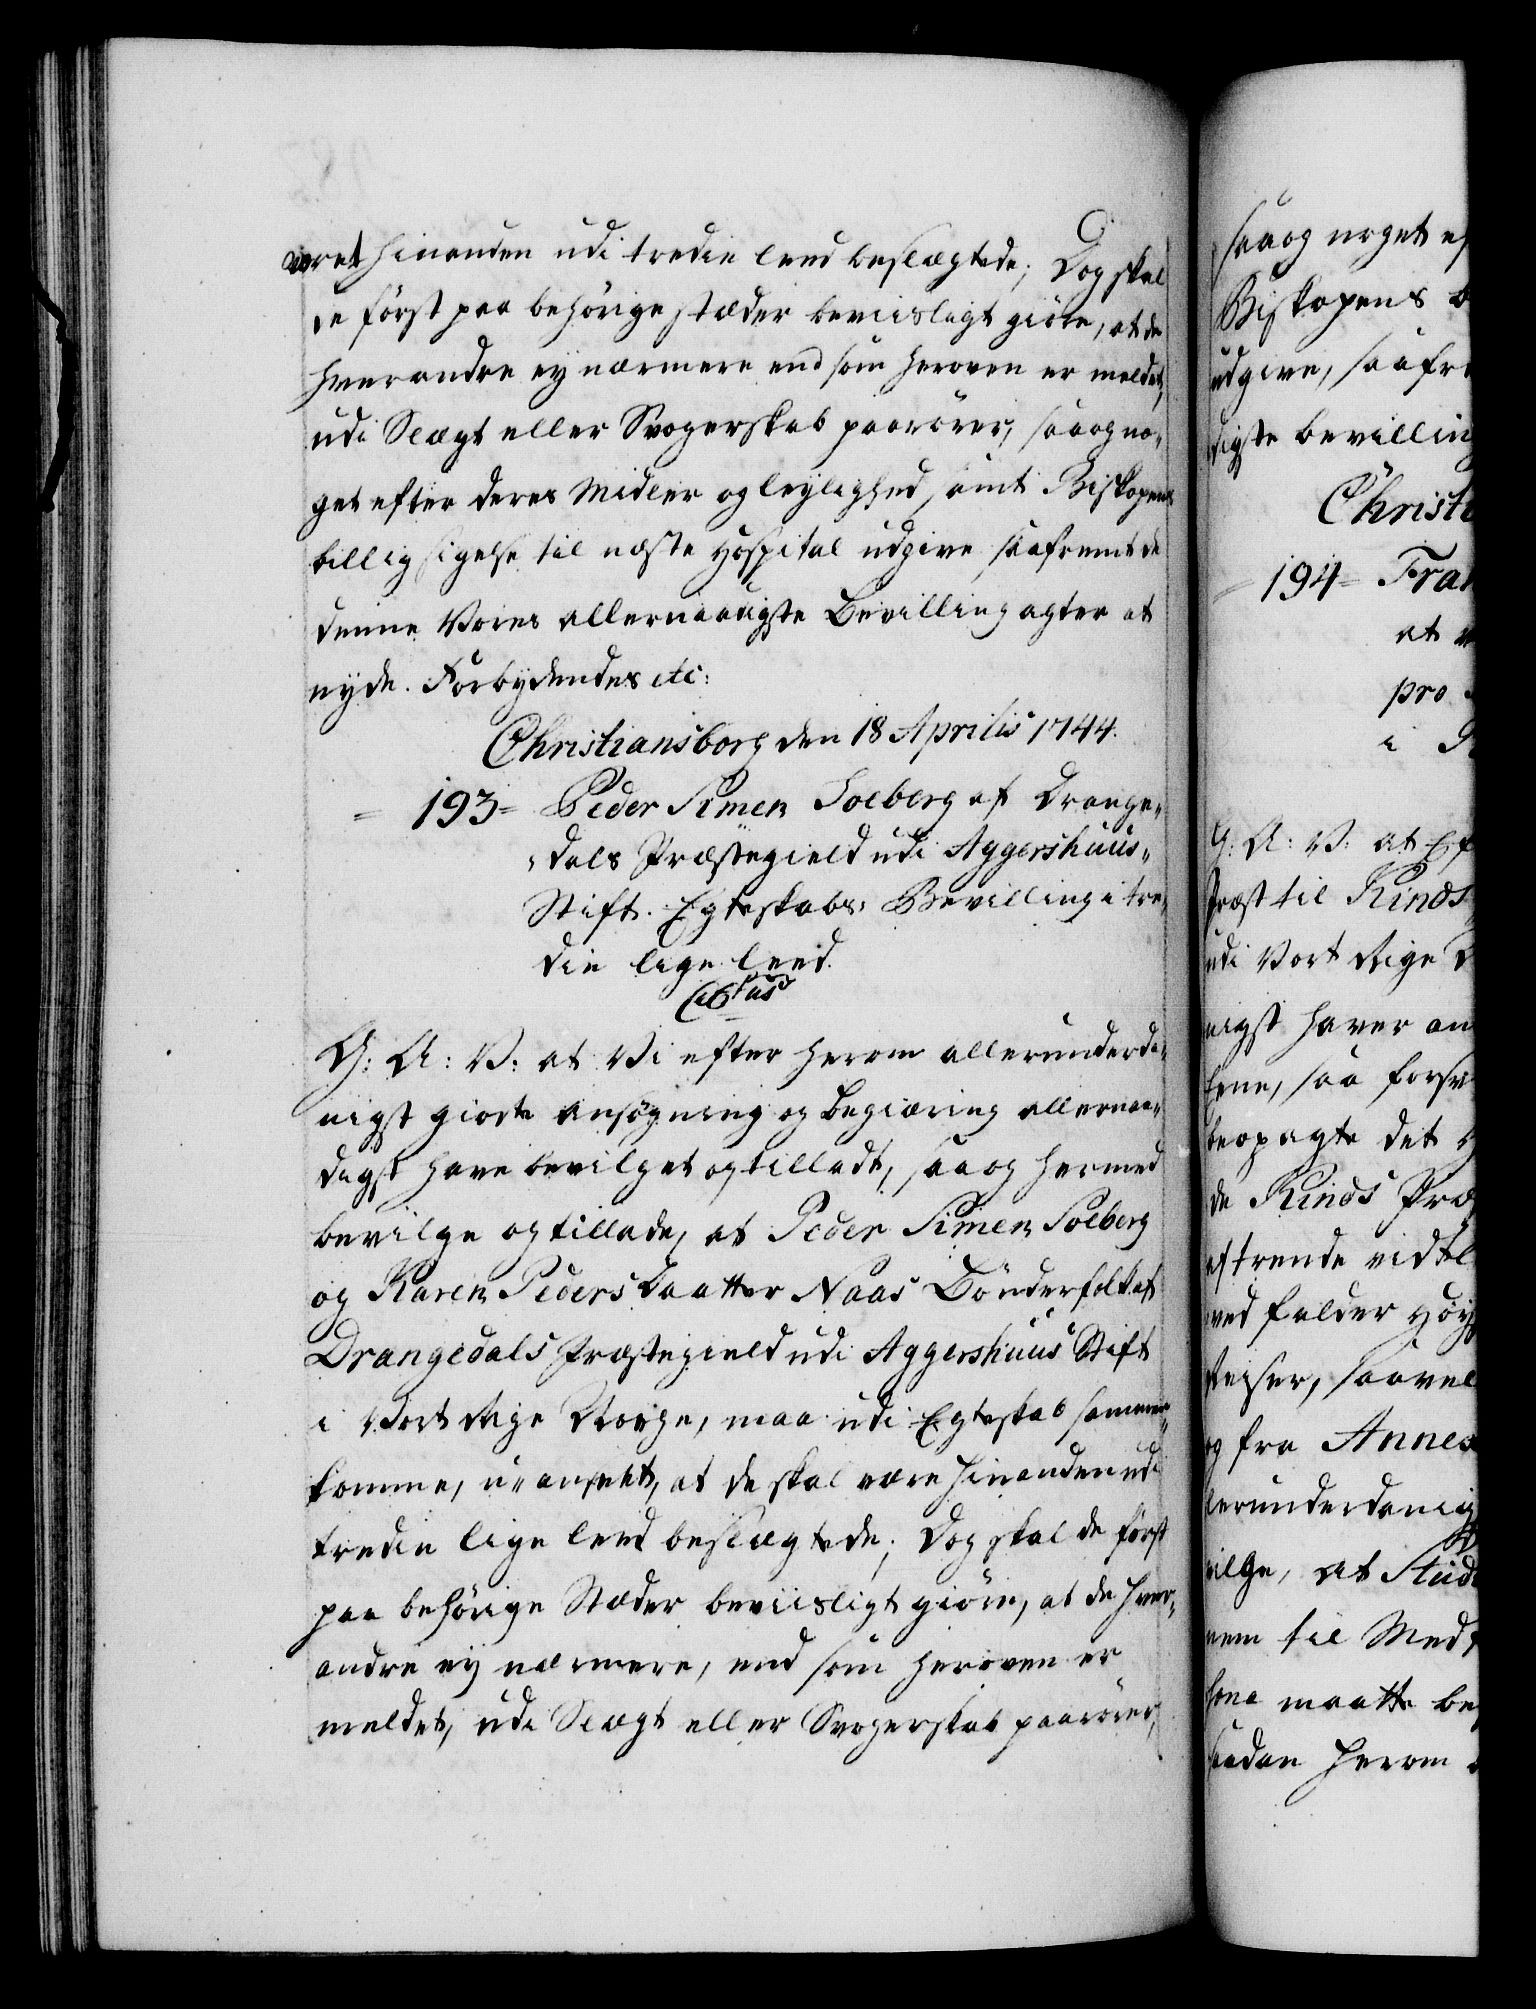 været hinanden udi tredie leed beslægtede; Dog skal
de först paa behörige stæder beviisligt giöre, at de
hverandre ey nærmere end som heroven er meldet,
udi Slægt eller Svogerskab paarörer, saa og no„
get efter deres Midler og leylighed, samt Biskopens
billig sigelse til næste Hospital udgive, saafremt de
denne Vores allernaadigste Bevilling agter at
nyde. Forbydendes etc:
Christiansborg den 18 Aprilis 1744.
= 193 = Peder Simen Soeberg af Drange„
„dals Præstegield udi Aggershuus„
Stift. Egteskabs: Bevilling i tre„
die lige leed.
G: A: V: at Vi efter herom allerunderda„
nigst giorte Ansögning og begiæring allernaa„
digst have bevilget og tilladt, saa og hermed
bevilge og tillade, at Peder Simen Soeberg
og Karen Peders Daatter Naas Bönderfolk af
Drangedals Præstegield udi Aggershuus Stift
i Vort Rige Norge, maa udi Egteskab sammen„
komme, u„anseet, at de skal være hinanden udi
tredie lige leed beslægtede; Dog skal de först
paa behörige Stæder beviisligt giöre, at de hver„
andre ey nærmere, end som heroven er
meldet, udi Slægt eller Svogerskab paarörer,
saa og noget ef
Biskopens
udgive, saafre
digste bevilling
Christi
= 194 = Fran
at
pro
i
G: A: V: at Ef
Præst til Kinds
udi Vort Rige
nigst haver an
saa forsv
det
de Kinds Præ
aftrende vidtl
ved falder Höy
reiser, saavel
og fra Annex
lerunderdanig
vilge, at Stud
nem til Med
sone maatte be
saadan herom